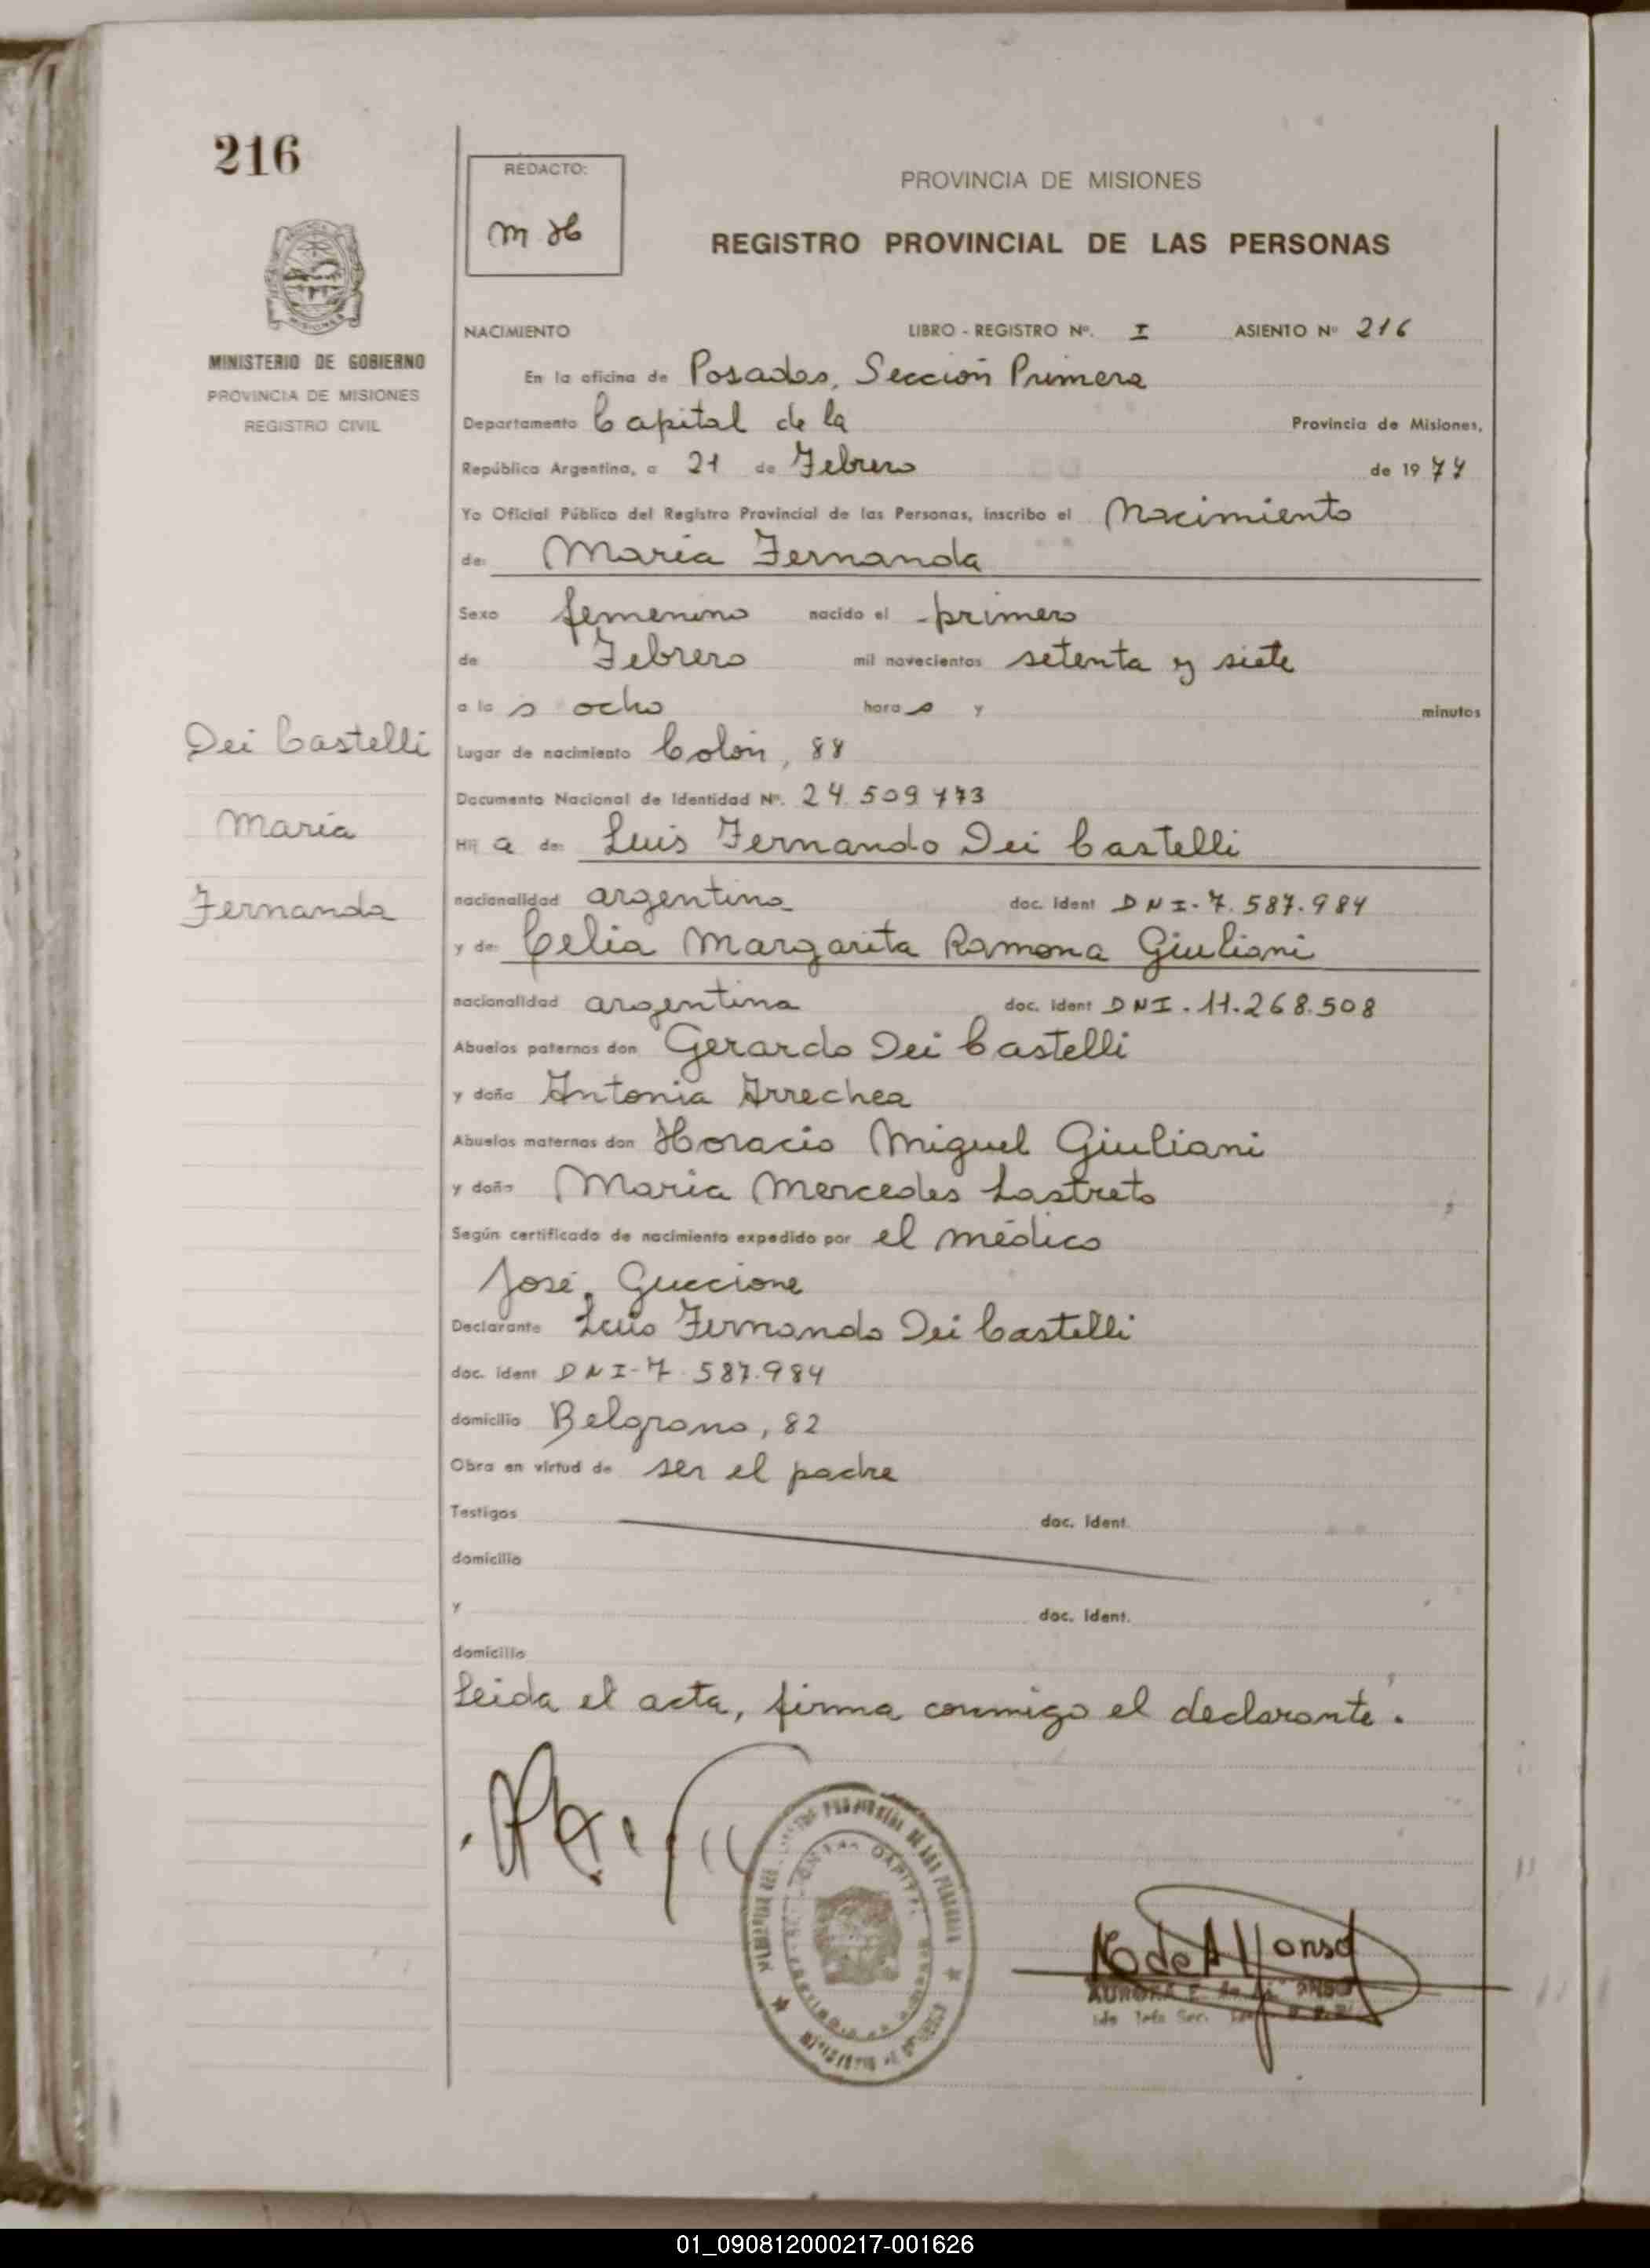 216
REDACTO:
M H
PROVINCIA DE MISIONES
REGISTRO PROVINCIAL DE LAS PERSONAS
MINISTERIO DE GOBIERNO
PROVINCIA DE MISIONES
REGISTRO CIVIL
NACIMIENTO LIBRO - REGISTRO Nº. I ASIENTO Nº 216
En la oficina de Posadas, Sección Primera
Departamento Capital de la Provincia de Misiones,
República Argentina, a 21 de Febrero de 1977
Yo Oficial Público del Registro Provincial de las Personas, inscribo el Nacimiento
de: María Fernanda
Sexo femenino nacido el primero
de Febrero mil novecientos setenta y siete
a la s ocho hora s y minutos
Dei Castelli
María
Fernanda
Lugar de nacimiento Colón, 88
Documento Nacional de Identidad Nº. 24.509.773
Hij a de: Luis Fernando Dei Castelli
nacionalidad argentina doc. ident DNI-7.587.984
y de: Celia Margarita Ramona Giuliani
nacionalidad argentina doc. ident DNI.11.268.508
Abuelos paternos don Gerardo Dei Castelli
y doña Antonia Arrechea
Abuelos maternos don Horacio Miguel Giuliani
y doña María Mercedes Lastreto
Según certificado de nacimiento expedido por el médico
José, Guccione
Declarante Luis Fernando Dei Castelli
doc. ident DNI-7.587.984
domicilio Belgrano, 82
Obra en virtud de ser el padre
Testigos doc. ident.
domicilio
y doc. ident.
domicilio
Leida el acta, firma conmigo el declarante.
01_090812000217-001626